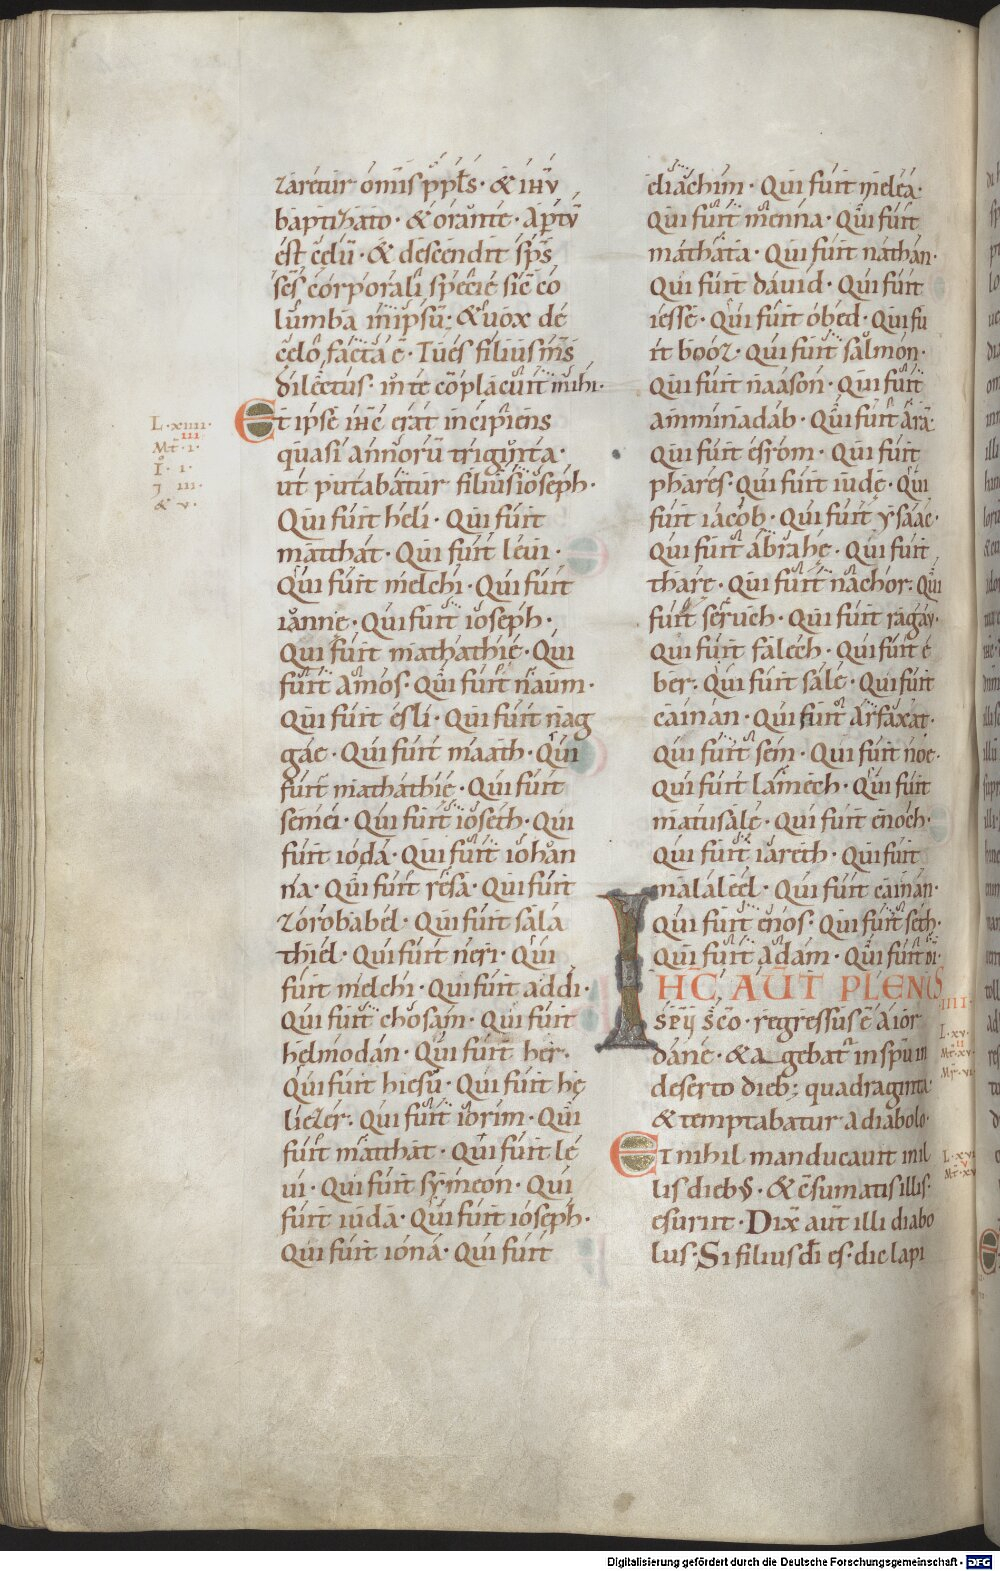 zaretur om̅is pp̅ls · & ih̅v
baptizato · & orante · Ap̅tv̅
est cęlu̅ · & descendit sp̅s
sc̅s corporali specie sic̅ co
lumba inipsu̅: & uox de
cęlo facta e̅ · Tues filius ms̅
dilectus · inte co̅placuit mihi ·
Et ipse ih̅c erat incipiens
quasi annoru̅ triginta ·
ut putabatur filiusioseph ·
Qui fuit heli · Qui fuit
matthat · Qui fuit leui ·
Qui fuit melchi · Qui fuit
ianne · Qui fuit ioseph ·
Qui fuit mathathie · Qui
fuit amos · Qui fuit naum ·
Qui fuit esli · Qui fuit nag
gae · Qui fuit maath · Qui
fuit mathathie · Qui fuit
semei · Qui fuit ioseth · Qui
fuit ioda · Qui fuit iohan
na · Qui fuit resa · Qui fuit
zorobabel · Qui fuit sala
thiel · Qui fuit neri · Qui
fuit melchi · Qui fuit addi ·
Qui fuit chosam · Qui fuit
helmodan · Qui fuit her ·
Qui fuit hiesu̅ · Qui fuit he
liezer · Qui fuit iorim · Qui
fuit matthat · Qui fuit le
ui · Qui fuit symeon · Qui
fuit iuda · Qui fuit ioseph ·
Qui fuit iona · Qui fuit
L · xiiii ·
III
Mt̅ · i ·
I · i ·
III ·
& v ·
eliachim · Qui fuit melea ·
Qui fuit menna · Qui fuit
mathata · Qui fuit nathan ·
Qui fuit dauid · Qui fuit
iesse · Qui fuit obed · Qui fu
it booz · Qui fuit salmon ·
Qui fuit naason · Qui fuit
amminadab · Qui fuit ara̅ ·
Qui fuit esrom · Qui fuit
phares · Qui fuit iudę · Qui
fuit iacob · Qui fuit ysaac ·
Qui fuit abrahę · Qui fuit
thare · Qui fuit nachor · Qui
fuit seruch · Qui fuit ragav ·
Qui fuit falech · Qui fuit e
ber · Qui fuit sale · Qui fuit
cainan · Qui fuit arfaxat ·
Qui fuit sem · Qui fuit noe ·
Qui fuit lamech · Qui fuit
matusale · Qui fuit enoch ·
Qui fuit iareth · Qui fuit
malaleel · Qui fuit cainan ·
Qui fuit enos · Qui fuit seth ·
Qui fuit adam · Qui fuit di̅ ·
IHC̅ AUT̅ PLENUS
sp̅u sc̅o · regressus e̅ aior
dane · & a gebat̅ in spu̅ in
deserto dieb; quadraginta ·
& temptabatur a diabolo ·
Et nihil manducauit inil
lis diebs · & co̅sumatis illis ·
esuriit · Dix̅ aut̅ illi diabo
lus · Si filius di̅ es · dic lapi
IIII ·
L · xv ·
II
Mt̅ · xv ·
Mr̅ · vi ·
L · xvi
V
Digitalisierung gefördert durch die Deutsche Forschungsgemeinschaft · DFG